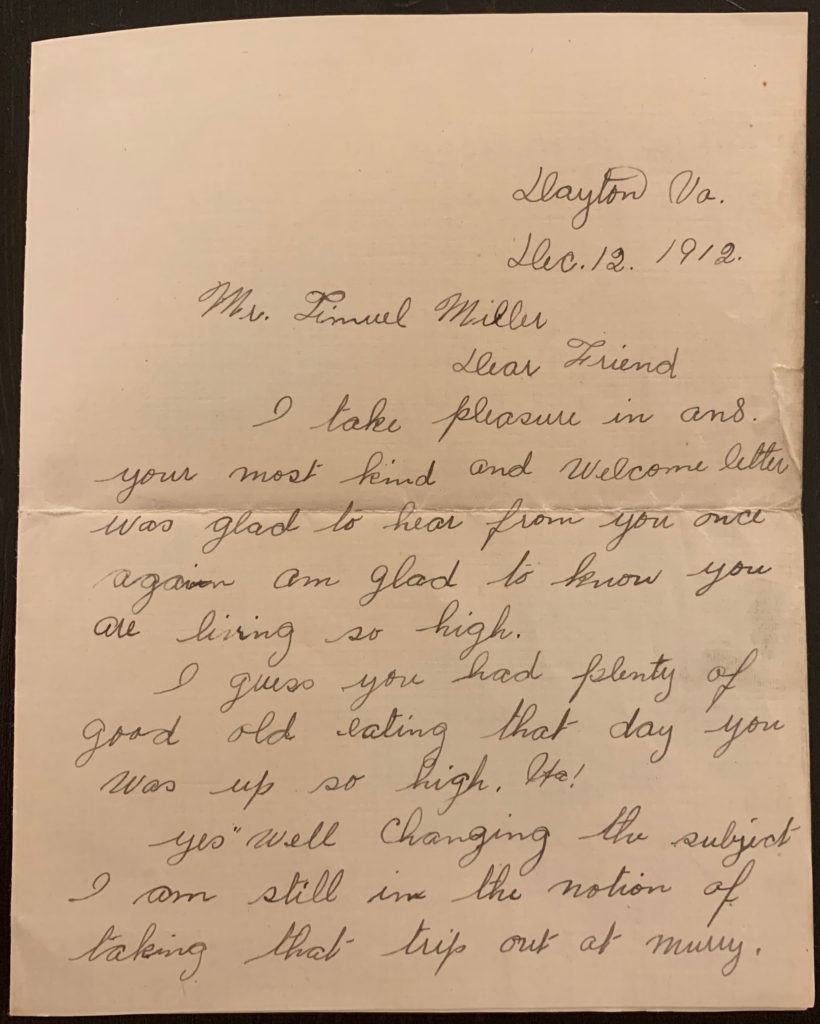 Dayton Va.
Dec. 12. 1912.
Mr. Timuel Miller
Dear Friend
I take pleasure in ans.
your most kind and Welcome letter
was glad to hear from you once
again am glad to know you
are living so high.
I guess you had plenty of
good old eating that day you
was up so high. Ha!
yes" well Changing the subject
I am still in the notion of
taking that trip out at murry.